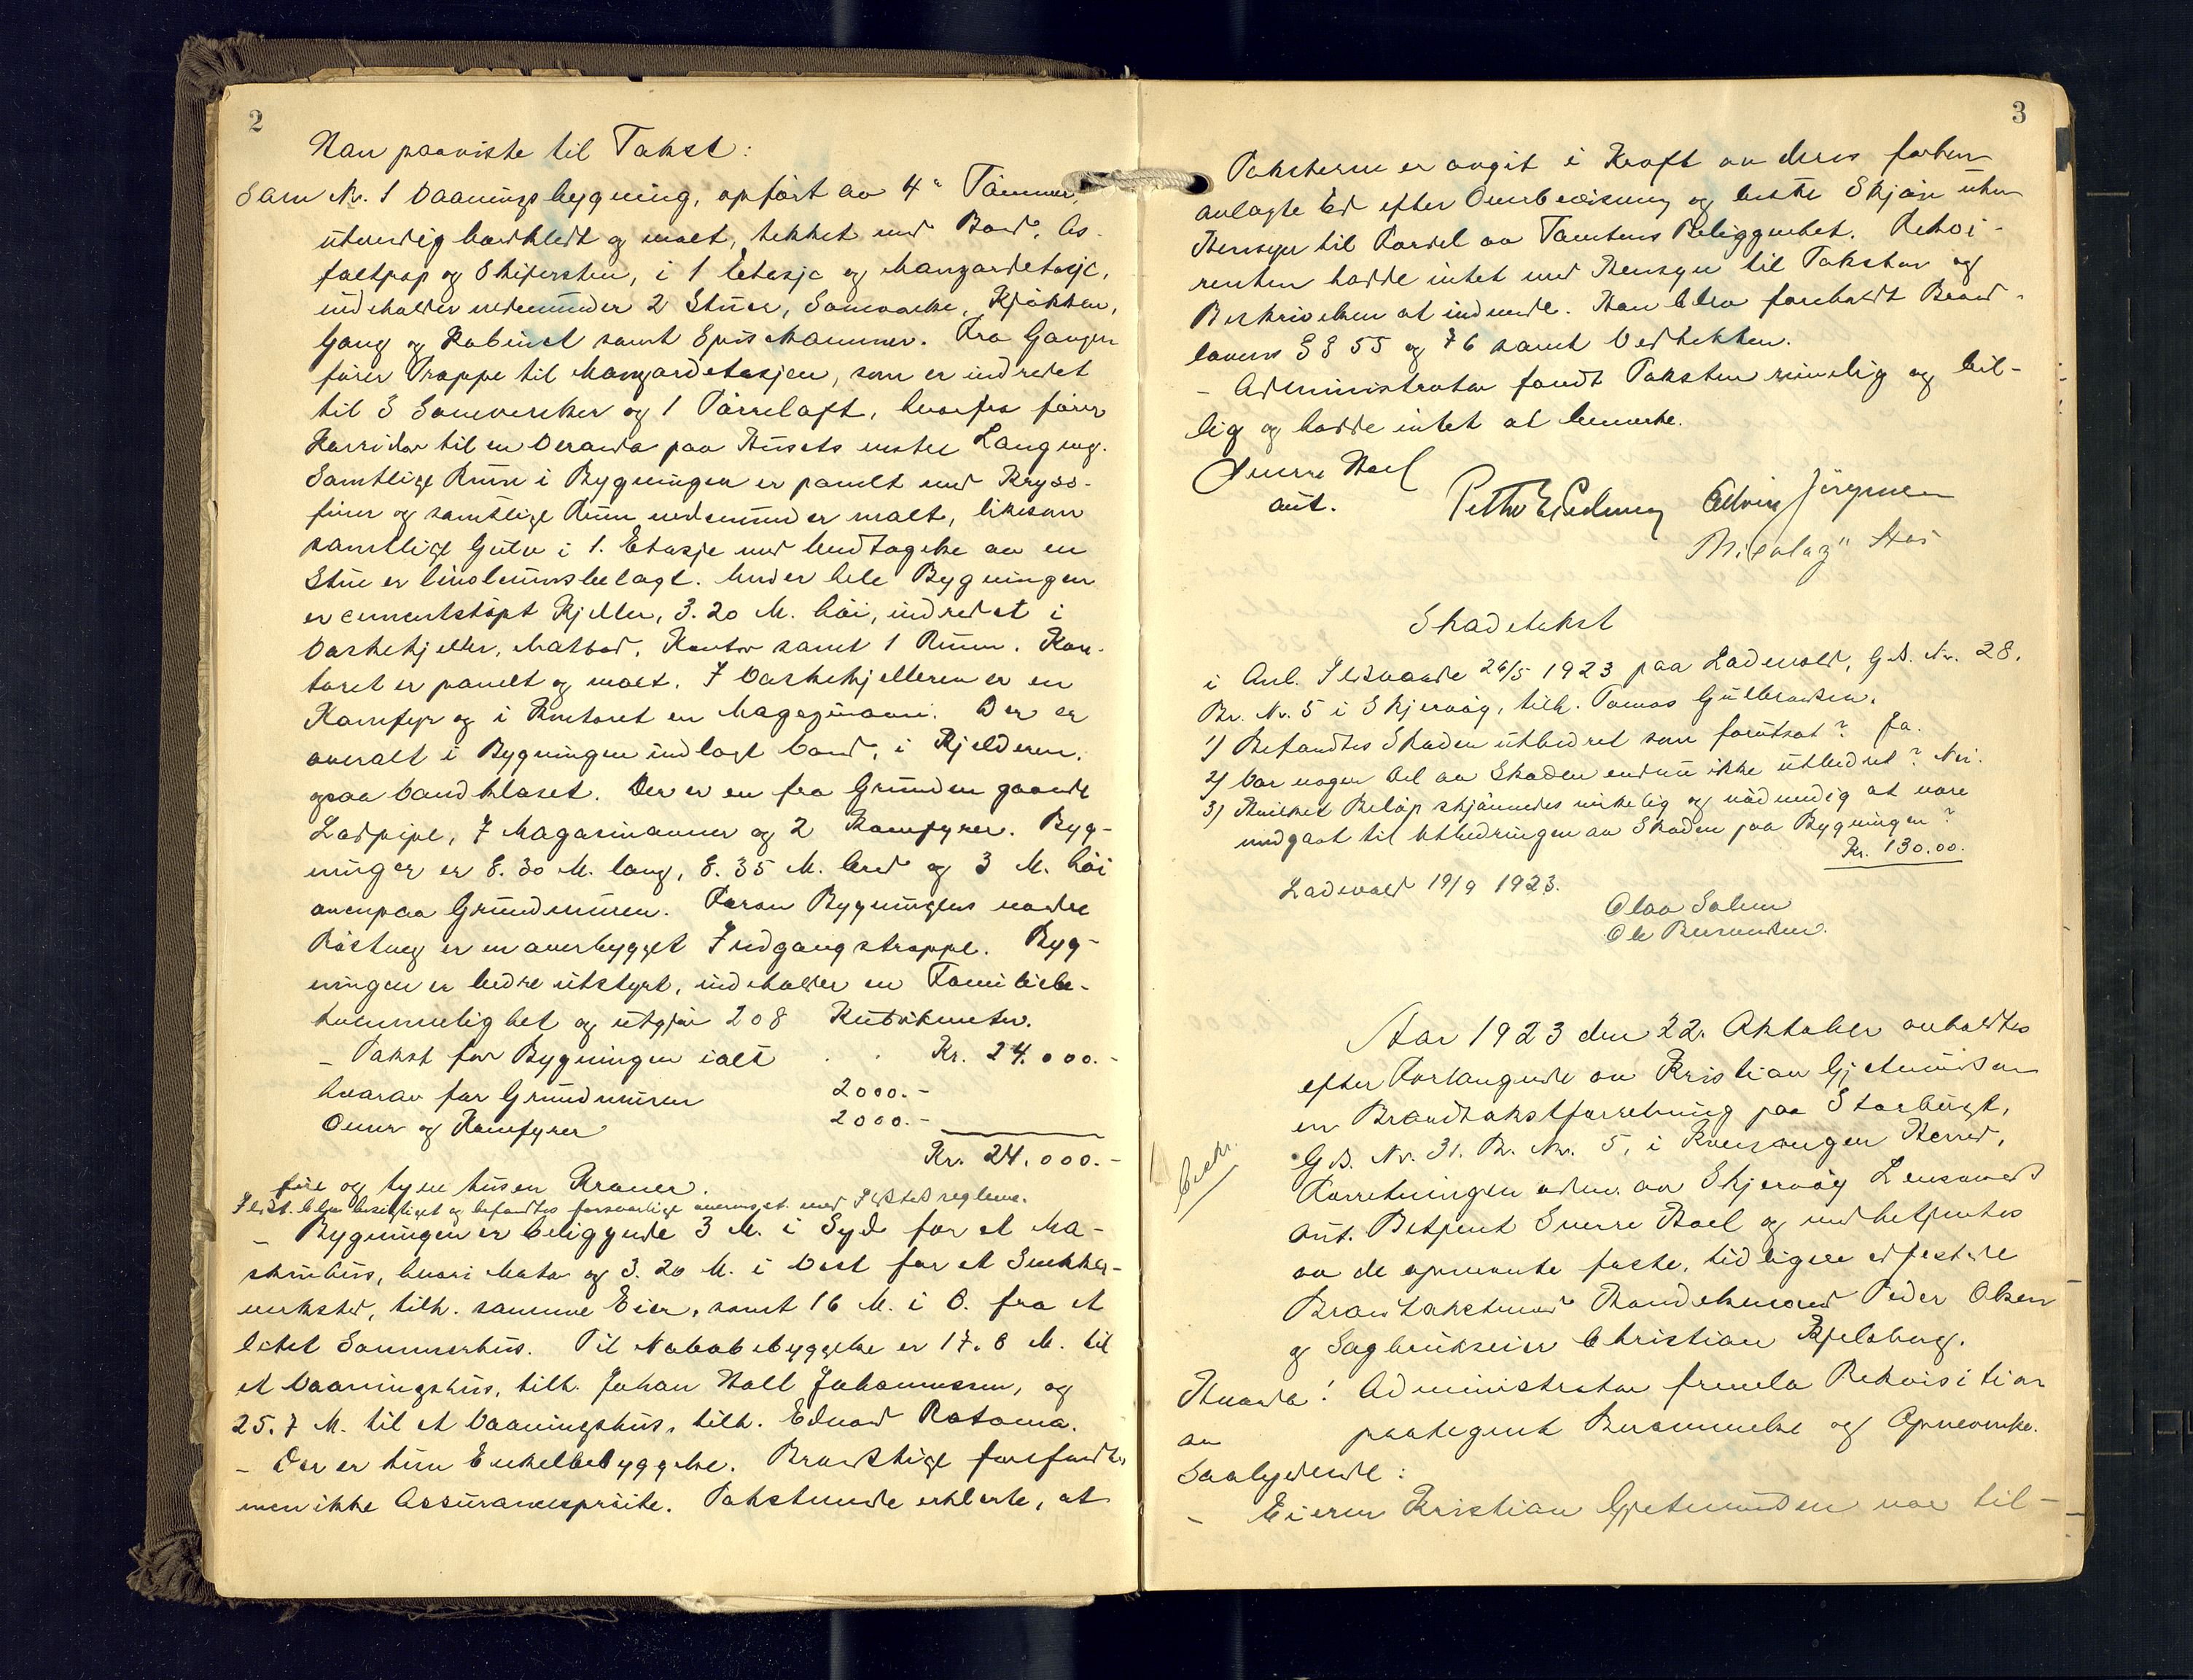 2
Han paaviste til Takst:
Som Nr. 1 Vaaningsbygning, opført av 4" Tømmer,
utvendig bordklædt og malt, tækket med Bord, As-
faltpap og Skifersten, i 1 Etasje og Mansardetasje,
indeholder nedenunder 2 Stuer, Soveværelse, Kjøkken,
Gang og Kabinet samt Spiskammer. Fra Gangen
fører Trappe til Mansardetasjen, som er indredet
til 3 Soveværelser og 1 Tørreloft, hvorfra fører
Korridor til en Veranda paa Husets østre Langvæg.
Samtlige Rum i Bygningen er panelt med Kryss-
finer og samtlige Rum nedenunder malt, likesom
samtlige Gulv i 1. Etasje med Undtagelse av en
Stue er linoleumsbelagt. Under hele Bygningen
er cementstøpt Kjelder, 3.20 M. høi, indredet i
Vaskekjelder, Matbod, Kontor samt 1 Rum. Kon-
toret er panelt og malt. I Vaskekjelleren er en
Komfyr og i Kontoret en Magazinovn. Der er
overalt i Bygningen indlagt Vand, i Kjelderen
ogsaa Vandklosett. Der er en fra Grunden gaaende
Lodpipe, 7 Magasinovner og 2 Komfyrer. Byg-
ningen er 8.30 M. lang, 8.35 M. bred og 3 M. høi
ovenpaa Grundmuren. Foran Bygningens nordre
Røstveg er en overbygget Indgangstrappe. Byg-
ningen er bedre utstyrt, indeholder en Familiebe-
kvemmelighet og utgjør 208 Kubikmeter.
- Takst for Bygningen ialt . . Kr. 24.000.-
hvorav for Grundmuren 2000.-
Ovner og Komfyrer 2000.-
Kr. 24.000.-
fire og tyve tusen Kroner.
Ildst. blev besigtiget og befandtes forsvarlige overensst. med Ildstedreglem.
- Bygningen er beliggende 3 M. i Syd for et Ma-
skinhus, hvori Motor og 3.20 M. i Vest for et Snekker-
verksted, tilh. samme Eier, samt 16 M. i Ø. fra et
litet Sommerhus. Til Nabobebyggelse er 17.8 M. til
et Vaaningshus, tilh. Johan Hall Johannessen, og
25.7 M. til et Vaaningshus, tilh. Edvard Rotoma.
- Der er kun Enkelbebyggelse. Brandstige forefandtes
men ikke Assurancesprøite. Takstmænde erklærte, at
3
Taksterne er avgit i Kraft av deres forhen
avlagte Ed efter Overbevisning og bedste Skjøn uten
Hensyn til Fordel av Tomtens Beliggenhet. Rekvi-
renten hadde intet med Hensyn til Takster og
Beskrivelsen at indvende. Han blev foreholdt Brand-
lovens §§ 55 og 76 samt Vedtekten.
- Administrator fandt Taksten rimelig og bil-
lig og hadde intet at bemerke.
Sverre Hoel
aut.
Edvin Jørgensen
Skadetakst
i Anl. Ildsvaade 26/5 1923 paa Ladevold, G.B. Nr. 28,
Br. Nr. 5 i Skjervøy, tilh. Tomas Gulbrandsen.
1) Befandtes Skaden utbedret som forutsat? Ja.
2) Var nogen Del av Skaden endnu ikke utbedret? Nei.
3) Hvilket Beløp skjønnedes virkelig og nødvendig at være
medgaat til Utbedringen av Skaden paa Bygningen?
Kr. 130.00.
Ladevold 19/9 1923.
Olav Solem
Ole Berentsen.
Aar 1923 den 22. Oktober avholdtes
efter Forlangende av Kristian Gjetmundsen
en Brandtakstforretning paa Storbugt,
G.B. Nr. 31. B. Nr. 5, i Kvenangen Herred.
Forretningen adm. av Skjervøy Lensmand
aut. Betjent Sverre Hoel og medbetjentes
av de opnevnte faste, tidligere edfestede
Brandtakstmænd Handelsmand Peder Olsen
og Sagbrukseier Christian Kjelsberg.
Hvorda! Administrator fremla Rekvisition
av paategnet Berammelse og Opnevnelse
saalydende:
- Eieren Kristian Gjetmundsen var til-